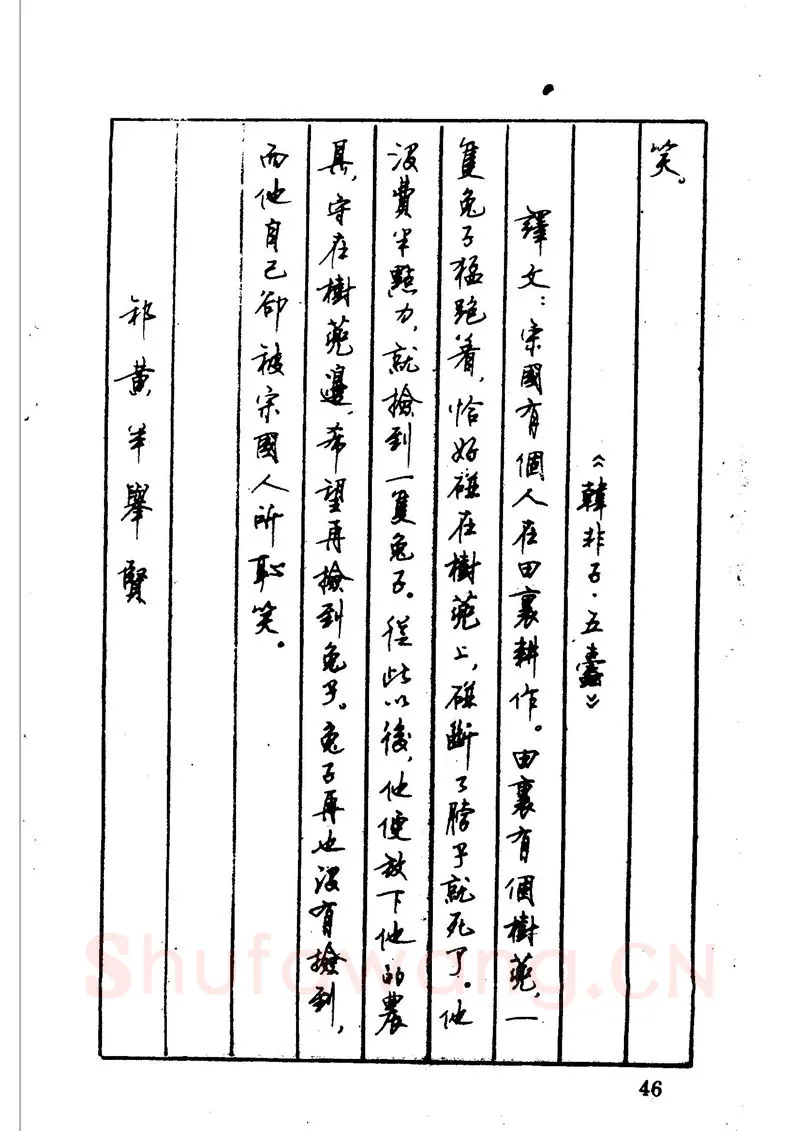 笑。
《韓非子·五蠹》
譯文：宋國有個人在田裏耕作。田裏有個樹蔸，一
隻兔子猛跑着，恰好碰在樹蔸上，碰斷了脖子就死了。他
沒費半點力，就撿到一隻兔子。從此以後，他便放下他的農
具，守在樹蔸邊，希望再撿到兔子。兔子再也沒有撿到，
而他自己卻被宋國人所恥笑。
祁黃羊舉賢
46
Shufawang.CN